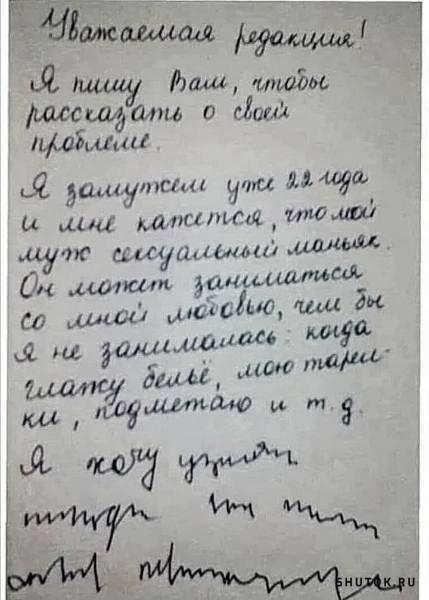 Уважаемая редакция!
Я пишу Вам, чтобы
рассказать о своей
проблеме.
Я замужем уже 22 года
и мне кажется, что мой
муж сексуальный маньяк.
Он может заниматься
со мной любовью, чем бы
я не занималась: когда
глажу бельё, мою тарел-
ки, подметаю и т.д.
Я хочу
SHUTOK.RU